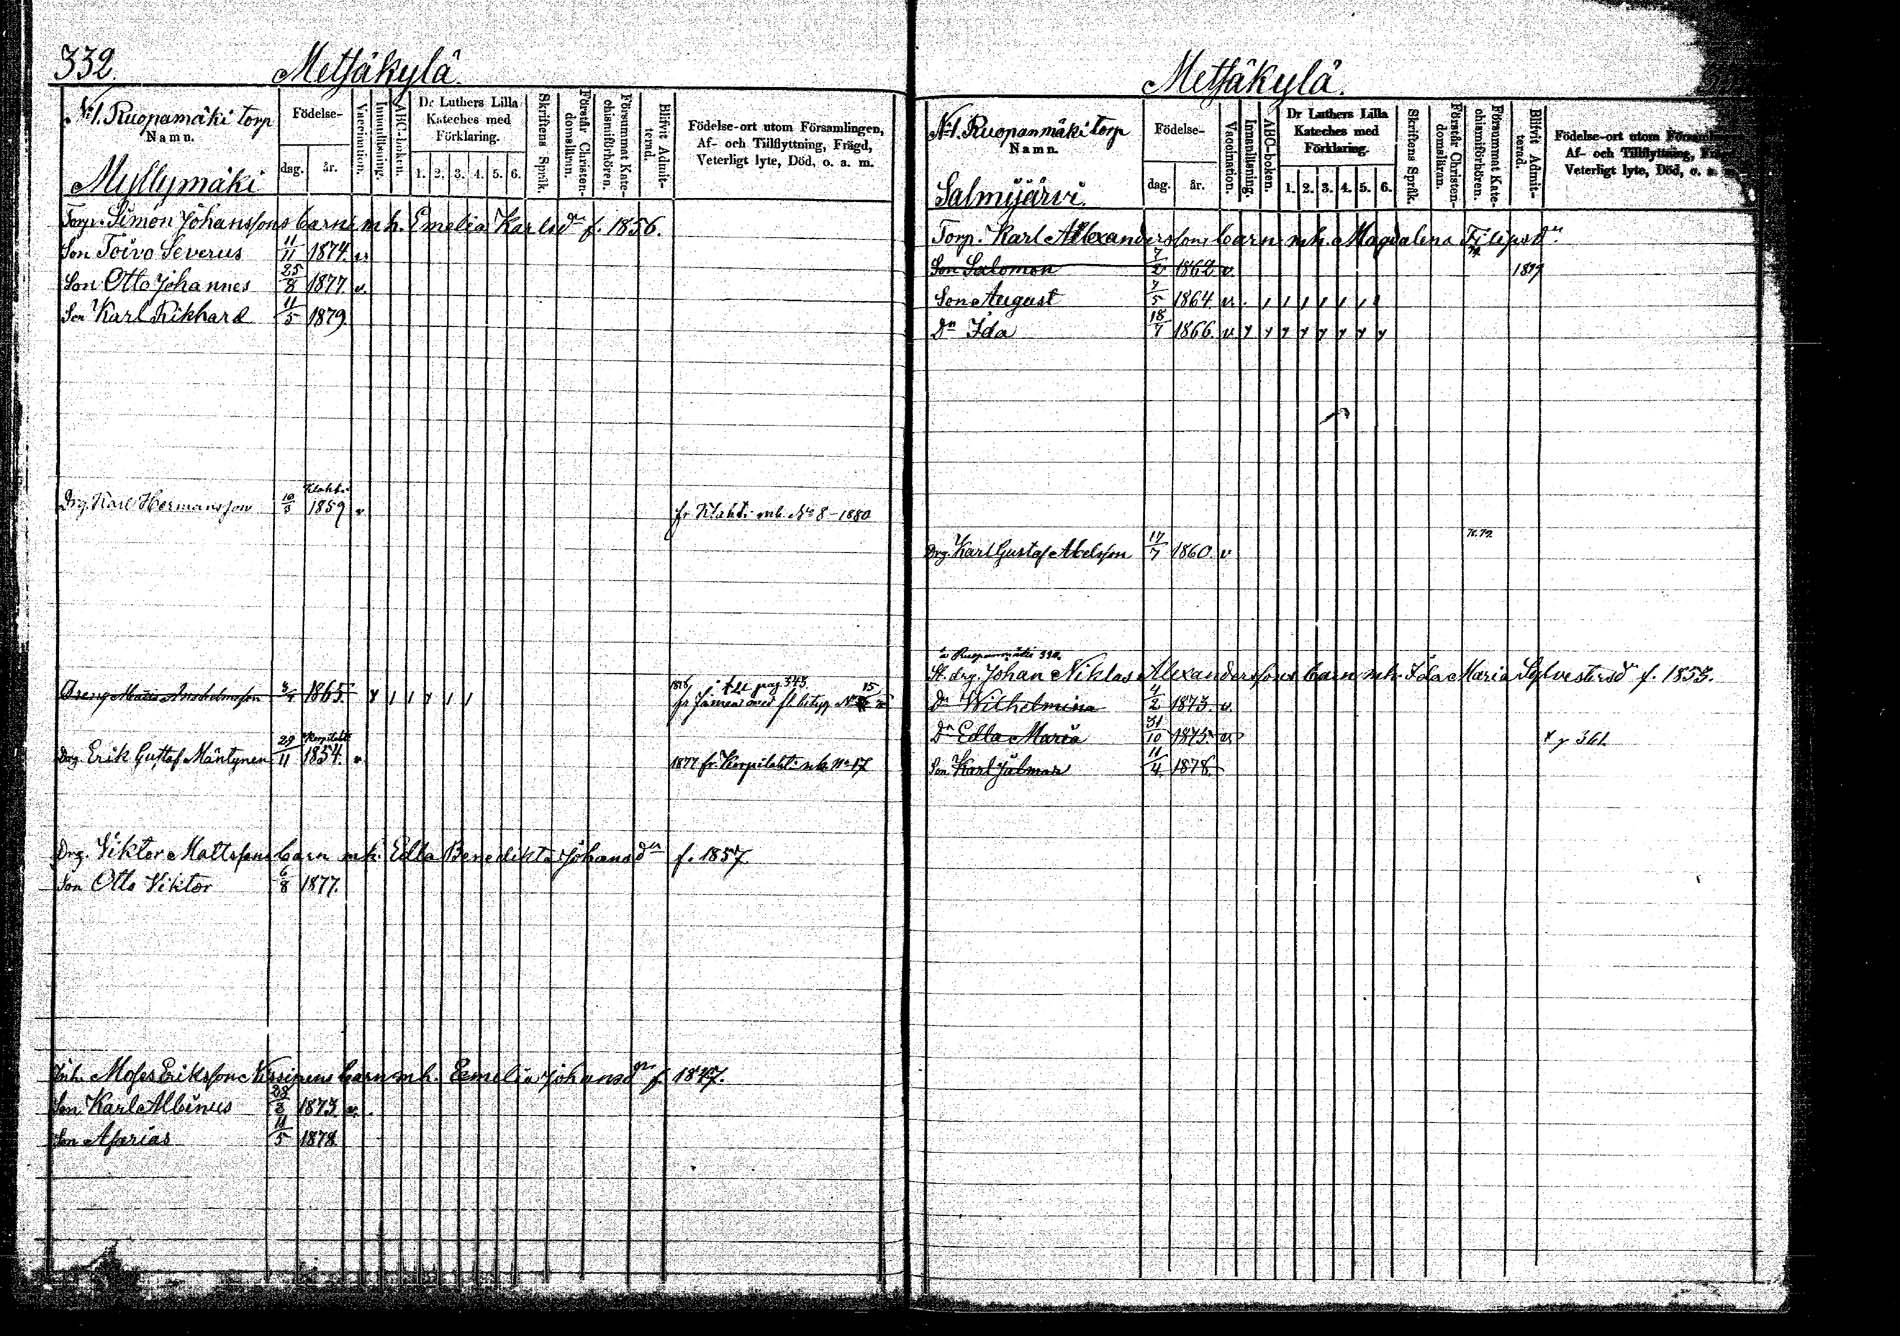 332.
Metsäkylä.
No 1. Ruopamäki torp
Namn.
Myllymäki
Födelse-
dag.
år.
Vaccination.
Innanläsning.
ABC-boken.
Dr Luthers Lilla
Kateches med
Förklaring.
1. 2. 3. 4. 5. 6.
Skriftens Språk.
Förstår Christen-
domsläran.
Försummat Kate-
chismiförhören.
Blifvit Admit-
terad.
Födelse-ort utom Församlingen,
Af- och Tillflyttning, Frägd,
Veterligt lyte, Död, o. a. m.
Torp. Simon Johanssons barn mh. Emelia Karlsdr f. 1856.
Son Toivo Severus 11/11 1874. v.
Son Otto Johannes 25/8 1877. v.
Son Karl Rikhard 11/5 1879.
Klahti
Drg. Karl Hermansson 10/3 1859 v fr Klahti mb. No 8-1880
1876 se pag 343
Dreng Mats Anshelmsson 3/4 1865. fr Jämsä med fl. betyg No 15
Korpilahti
Drg. Erik Gustaf Mäntynen 29/11 1854. v 1877 fr. Korpilahti mb. No 17
Drg. Viktor Mattssons barn mh. Edla Benedikta Johansdr f. 1857.
Son Otto Viktor 6/8 1877.
Inh. Moses Eriksson Nissinens barn mh. Emelia Johansdr f. 1847.
Son Karl Albinus 28/3 1873 v.
Son Asarias 11/5 1878
Metsäkylä.
No 1. Ruopanmäki torp
Namn.
Salmijärvi.
Födelse-
dag.
år.
Vaccination.
Innanläsning.
ABC-boken.
Dr Luthers Lilla
Kateches med
Förklaring.
1. 2. 3. 4. 5. 6.
Skriftens Språk.
Förstår Christen-
domsläran.
Försummat Kate-
chismiförhören.
Blifvit Admit-
terad.
Födelse-ort utom
Af- och Tillflyttning,
Veterligt lyte, Död, o. a. m.
Torp. Karl Alexanderssons barn mh. Magdalena Filipsdr.
Son Salomon 7/2 1862 v. 1879
Son August 7/5 1864 v.
Dr Ida 18/7 1866. v.
Drg. Karl Gustaf Abelsson 17/7 1860. v
St. drg. Johan Niklas Alexanderssons barn mh. Ida Maria Sylvestersdr f. 1853.
Dr Wilhelmina 4/2 1873. v.
Dr Edla Maria 31/10 1875. v. 361.
Son Karl Jalmar 11/4 1878.